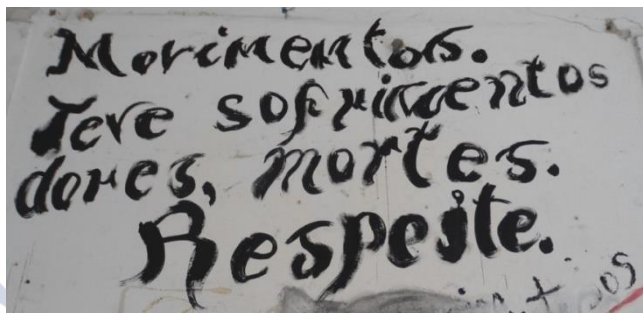 Movimentos.
Teve sofrimentos
dores, mortes.
Respeite.